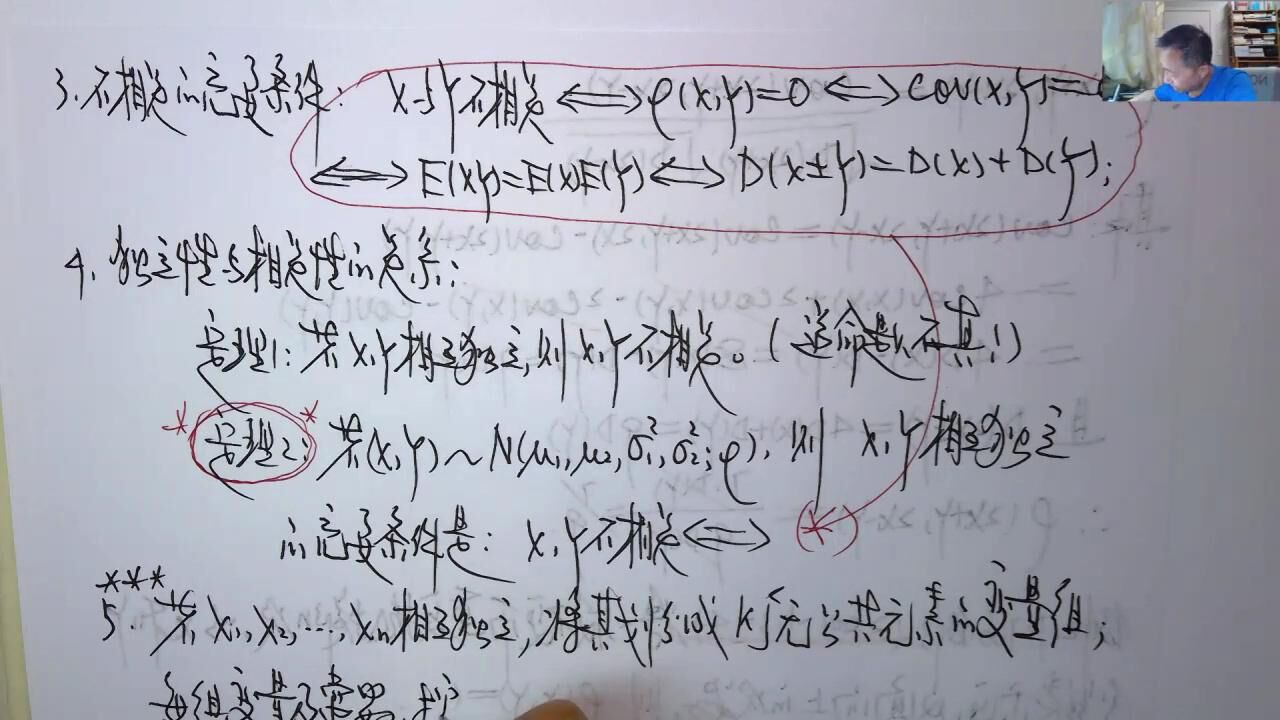 3. 不相关的充要条件: X与Y不相关 ⟺ ρ(X,Y)=0 ⟺ COV(X,Y)=
⟺ E(XY)=E(X)E(Y) ⟺ D(X±Y)=D(X)+D(Y);
4. 独立性与相关性的关系:
定理1: 若X,Y相互独立,则X,Y不相关。(逆命题不真!)
*定理2*: 若(X,Y)~N(μ₁,μ₂,σ₁²,σ₂²;ρ), 则 X,Y相互独立
的充要条件是: X,Y不相关 ⟺ (*)
***
5. 若X₁,X₂,…,Xn相互独立,将其划分成K个无公共元素的变量组;
每组变量